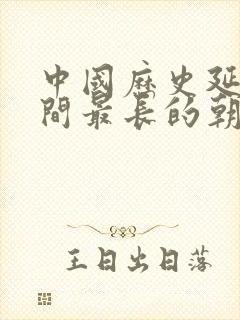 中國歷史延
間最長的朝
王日出日落